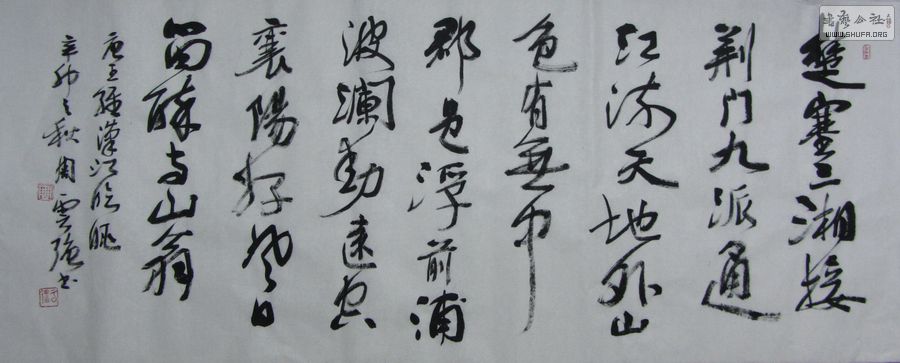 楚塞三湘接
荆门九派通
江流天地外山
色有無中
郡邑浮前浦
波瀾動遠空
襄陽好风日
留醉与山翁
唐王維漢江临眺
辛卯之秋周雲強书
书艺公社
WWW.SHUFA.ORG